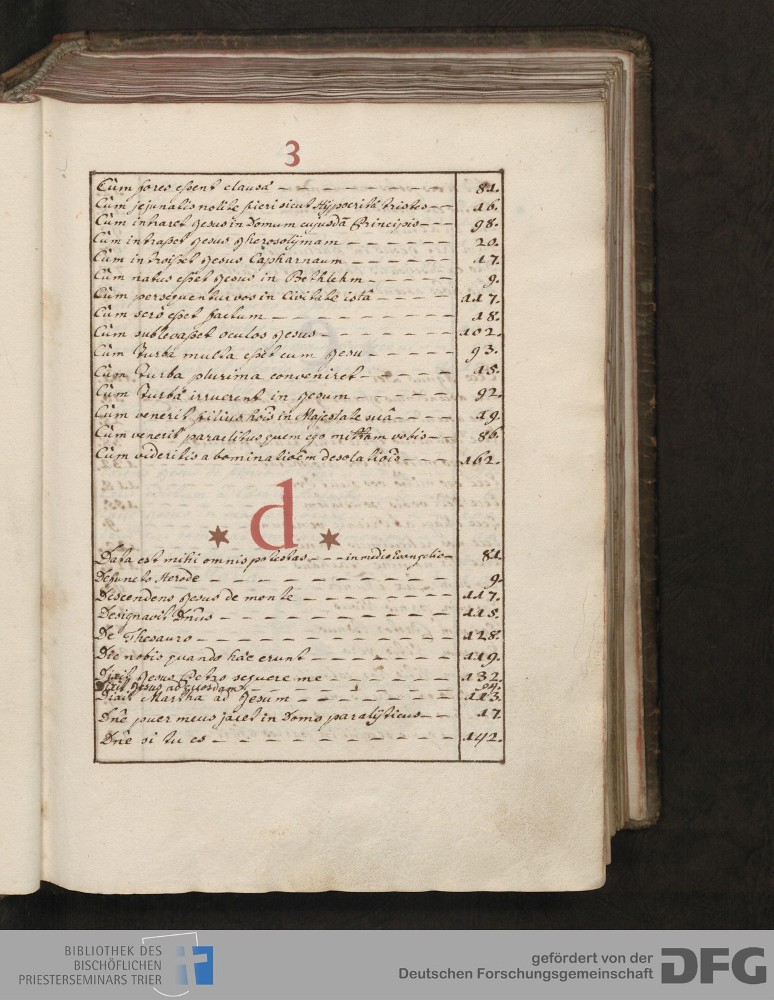 3
Cùm fores essent clausa – – – – – – – – – 81.
Cùm jejunatis nolite fieri sicut Hÿpocrità tristes – – 16.
Cùm intraret Jesus in Domum cujusdā Principis – – – 98.
Cùm intrasset Jesus Jherosolÿmam – – – – – – 20.
Cùm introisset Jesus Capharnaum – – – – – – 17.
Cùm natus esset Jesus in Bethlehm – – – – – 9.
Cùm persequentur vos in Civitate istâ – – – – 117.
Cùm serò esset factum – – – – – – – – – 18.
Cùm sublevasset oculos Jesus – – – – – – – 102.
Cùm Turba multa esset cum Jesu – – – – – 93.
Cùm Turba plurima conveniret – – – – – 15.
Cùm Turbá irruerent in Jesum – – – – – 92.
Cùm venerit filius hoīs in Majestate suâ – – – – 19.
Cùm venerit paraclitus quem ego mittam vobis – – 86.
Cùm videritis abominatioēm desolatiōis – – – – 162.
d
Data est mihi omnis potestas – – – in medio Evangelio – 81.
Defuncto Herode – – – – – – – – – – – 9.
Descendens Jesus de monte – – – – – – – – 117.
Designavit Dn̄us – – – – – – – – – – – 115.
De Thesauro – – – – – – – – – – – – 128.
Dic nobis quando hæc erunt – – – – – – – 119.
Dixit Jesus Petro sequere me – – – – – – – 132.
Dixit Jesus ad quosdam
Dixit Martha ad Jesum – – – – – – – – 113.
Dn̄e puer meus jacet in Domo paralÿticus – – 17
Dn̄e si tu es – – – – – – – – – – – 142.
BIBLIOTHEK DES
BISCHÖFLICHEN
PRIESTERSEMINARS TRIER
gefördert von der
Deutschen Forschungsgemeinschaft
DFG